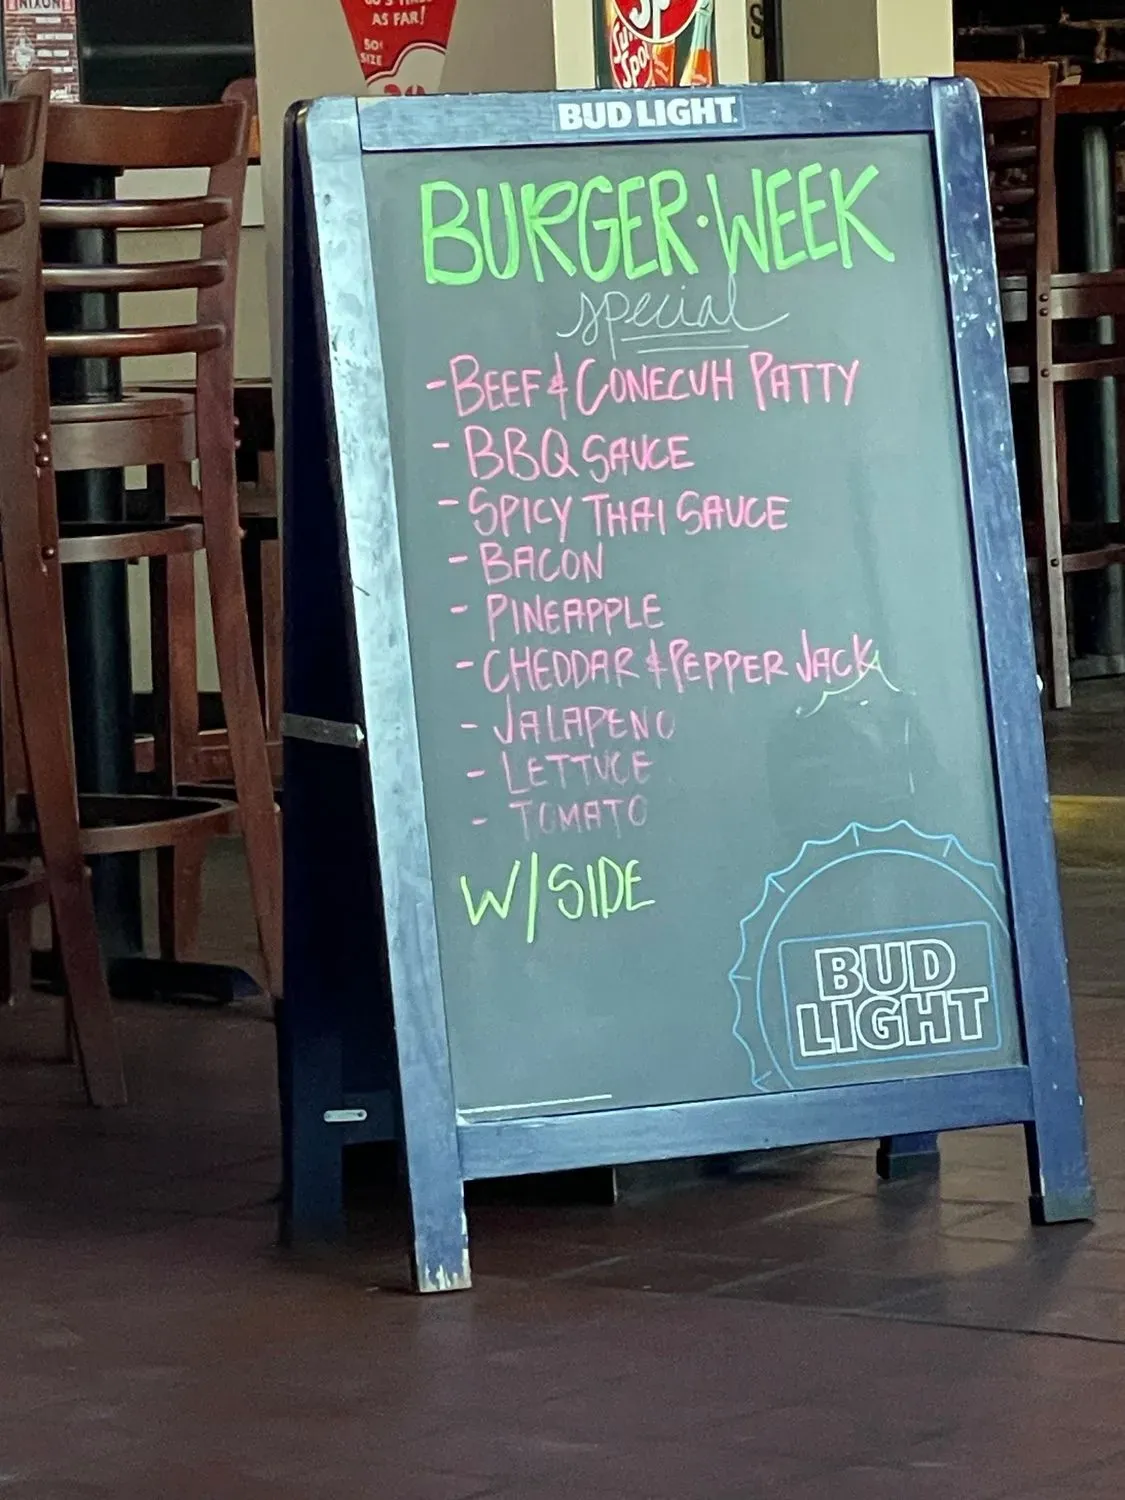 NIXON
AS FAR!
50¢
SIZE
Sp
Sun
Spot
BUD LIGHT
BURGER·WEEK
special
-BEEF & CONECUH PATTY
- BBQ SAUCE
- SPICY THAI SAUCE
- BACON
- PINEAPPLE
- CHEDDAR & PEPPER JACK
- JALAPENO
- LETTUCE
- TOMATO
W/SIDE
BUD
LIGHT